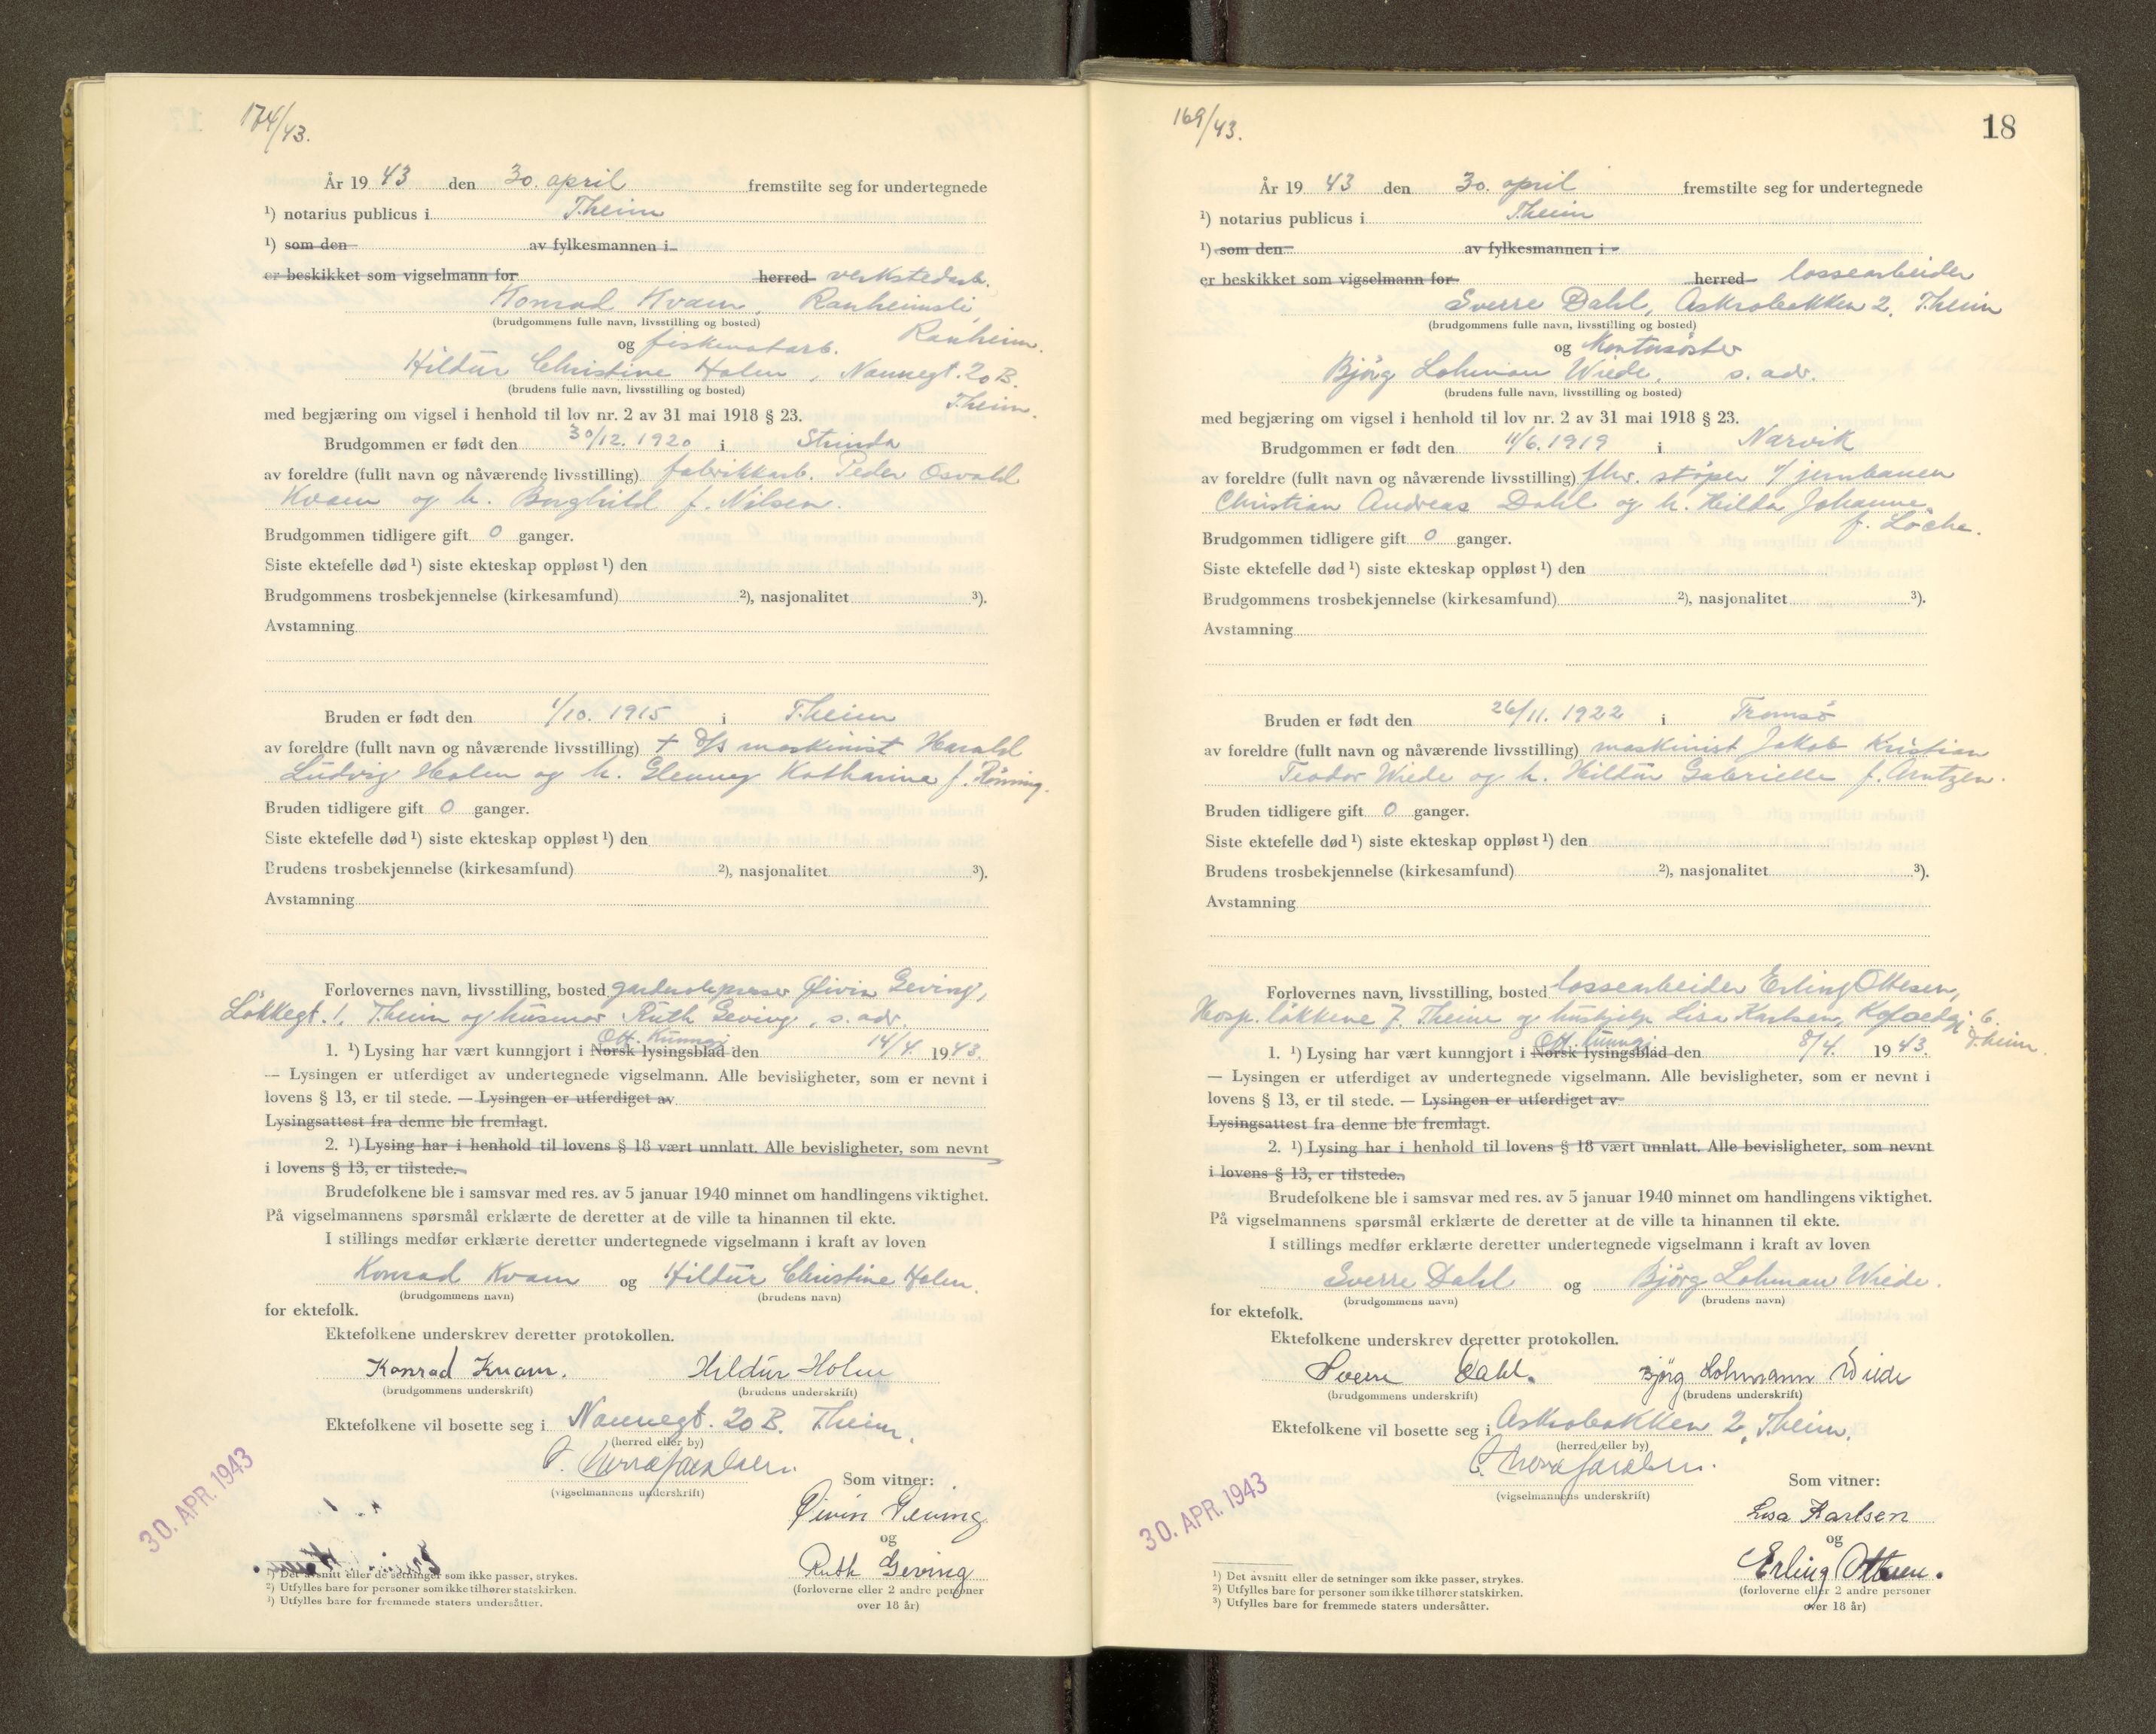 174/43.
År 19 43 den 30. april fremstilte seg for undertegnede
¹) notarius publicus i T.heim
¹) som den av fylkesmannen i
er beskikket som vigselmann for herred verkstedarb.
Konrad Kvam, Ranheimsli,
(brudgommens fulle navn, livsstilling og bosted)
Ranheim.
og fiskematarb.
Hildur Christine Holm, Nannegt. 20 B.
(brudens fulle navn, livsstilling og bosted)
T.heim.
med begjæring om vigsel i henhold til lov nr. 2 av 31 mai 1918 § 23.
Brudgommen er født den 30/12. 1920 i Strinda
av foreldre (fullt navn og nåværende livsstilling) fabrikkarb. Peder Osvald
Kvam og h. Borghild f. Nilsen.
Brudgommen tidligere gift 0 ganger.
Siste ektefelle død ¹) siste ekteskap oppløst ¹) den
Brudgommens trosbekjennelse (kirkesamfund) ²), nasjonalitet ³).
Avstamning
Bruden er født den 1/10. 1915 i T.heim
av foreldre (fullt navn og nåværende livsstilling) + d/s maskinist Harald
Ludvig Holm og h. Glenny Katharina f. Röning.
Bruden tidligere gift 0 ganger.
Siste ektefelle død ¹) siste ekteskap oppløst ¹) den
Brudens trosbekjennelse (kirkesamfund) ²), nasjonalitet ³).
Avstamning
Forlovernes navn, livsstilling, bosted Øivin Geving,
Løkkegt. 1, T.heim og husmor Ruth Geving, s. adr.
Off. Kunngj.
1. ¹) Lysing har vært kunngjort i Norsk lysingsblad den 14/4. 19 43.
— Lysingen er utferdiget av undertegnede vigselmann. Alle bevisligheter, som er nevnt i
lovens § 13, er til stede. — Lysingen er utferdiget av
Lysingsattest fra denne ble fremlagt.
2. ¹) Lysing har i henhold til lovens § 18 vært unnlatt. Alle bevisligheter, som nevnt
i lovens § 13, er tilstede.
Brudefolkene ble i samsvar med res. av 5 januar 1940 minnet om handlingens viktighet.
På vigselmannens spørsmål erklærte de deretter at de ville ta hinannen til ekte.
I stillings medfør erklærte deretter undertegnede vigselmann i kraft av loven
Konrad Kvam og Hildur Christine Holm.
(brudgommens navn) (brudens navn)
for ektefolk.
Ektefolkene underskrev deretter protokollen.
Konrad Kvam. Hildur Holm
(brudgommens underskrift) (brudens underskrift)
Ektefolkene vil bosette seg i Nannegt. 20 B. T.heim.
(herred eller by)
(vigselmannens underskrift)
Som vitner:
30. APR. 1943
Øivin Geving
og
Ruth Geving
(forloverne eller 2 andre personer
over 18 år)
¹) Det avsnitt eller de setninger som ikke passer, strykes.
²) Utfylles bare for personer som ikke tilhører statskirken.
³) Utfylles bare for fremmede staters undersåtter.
169/43.
18
År 19 43 den 30. april fremstilte seg for undertegnede
¹) notarius publicus i T.heim
¹) som den av fylkesmannen i
er beskikket som vigselmann for herred lossearbeider
Sverre Dahl, Askrobakken 2, T.heim
(brudgommens fulle navn, livsstilling og bosted)
og
Bjørg Lohman Wiede, s. adr.
(brudens fulle navn, livsstilling og bosted)
med begjæring om vigsel i henhold til lov nr. 2 av 31 mai 1918 § 23.
Brudgommen er født den 11/6. 1919 i Narvik
av foreldre (fullt navn og nåværende livsstilling) fhv. støper v/ jernbanen
Christian Andreas Dahl og h. Hilda Johanne
f. Løche.
Brudgommen tidligere gift 0 ganger.
Siste ektefelle død ¹) siste ekteskap oppløst ¹) den
Brudgommens trosbekjennelse (kirkesamfund) ²), nasjonalitet ³).
Avstamning
Bruden er født den 26/11. 1922 i Tromsø
av foreldre (fullt navn og nåværende livsstilling) maskinist Jakob Kristian
Teodor Wiede og h. Hildur Gabrielle f. Arntzen.
Bruden tidligere gift 0 ganger.
Siste ektefelle død ¹) siste ekteskap oppløst ¹) den
Brudens trosbekjennelse (kirkesamfund) ²), nasjonalitet ³).
Avstamning
Forlovernes navn, livsstilling, bosted lossearbeider Erling Ottesen,
Hosp. løkkene 7. T.heim og hushjelp Lisa Karlsen, 6.
T.heim.
Off. Kunngj.
1. ¹) Lysing har vært kunngjort i Norsk lysingsblad den 8/4. 19 43.
— Lysingen er utferdiget av undertegnede vigselmann. Alle bevisligheter, som er nevnt i
lovens § 13, er til stede. — Lysingen er utferdiget av
Lysingsattest fra denne ble fremlagt.
2. ¹) Lysing har i henhold til lovens § 18 vært unnlatt. Alle bevisligheter, som nevnt
i lovens § 13, er tilstede.
Brudefolkene ble i samsvar med res. av 5 januar 1940 minnet om handlingens viktighet.
På vigselmannens spørsmål erklærte de deretter at de ville ta hinannen til ekte.
I stillings medfør erklærte deretter undertegnede vigselmann i kraft av loven
Sverre Dahl og Bjørg Lohman Wiede.
(brudgommens navn) (brudens navn)
for ektefolk.
Ektefolkene underskrev deretter protokollen.
Sverre Dahl. Bjørg Lohmann Wiede
(brudgommens underskrift) (brudens underskrift)
Ektefolkene vil bosette seg i Askrobakken 2, T.heim.
(herred eller by)
(vigselmannens underskrift)
Som vitner:
30. APR. 1943
Lisa Karlsen
og
Erling Ottesen.
(forloverne eller 2 andre personer
over 18 år)
¹) Det avsnitt eller de setninger som ikke passer, strykes.
²) Utfylles bare for personer som ikke tilhører statskirken.
³) Utfylles bare for fremmede staters undersåtter.